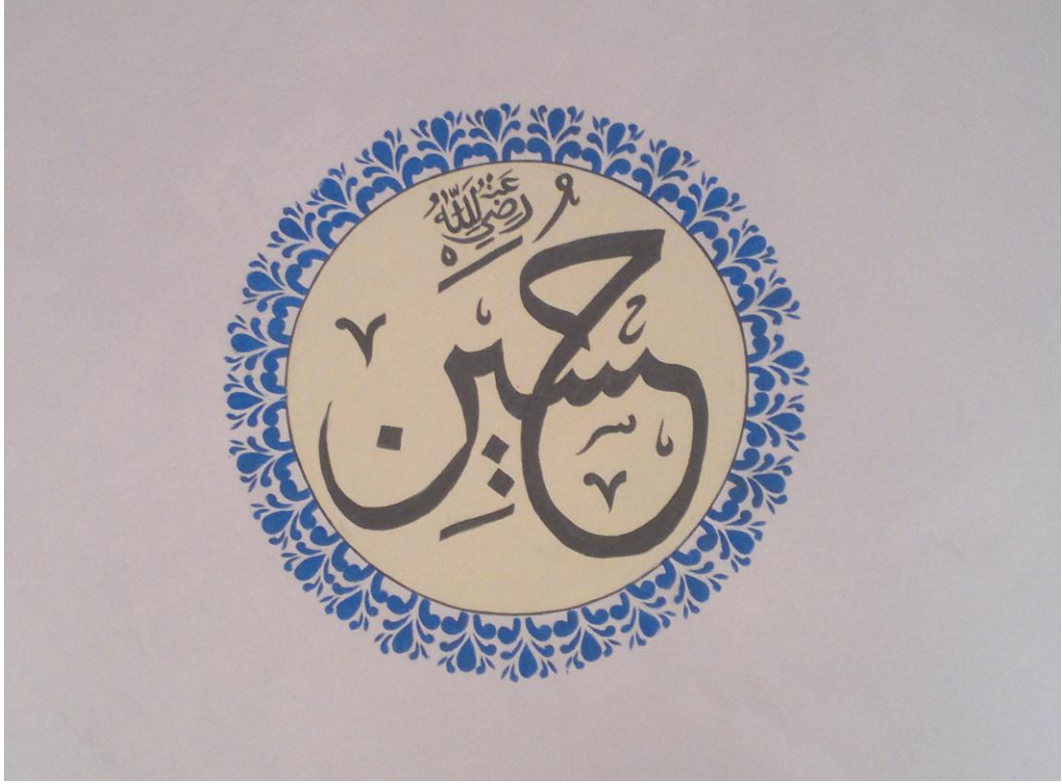 رَضِيَ اللَّهُ عَنْهُ
حسين